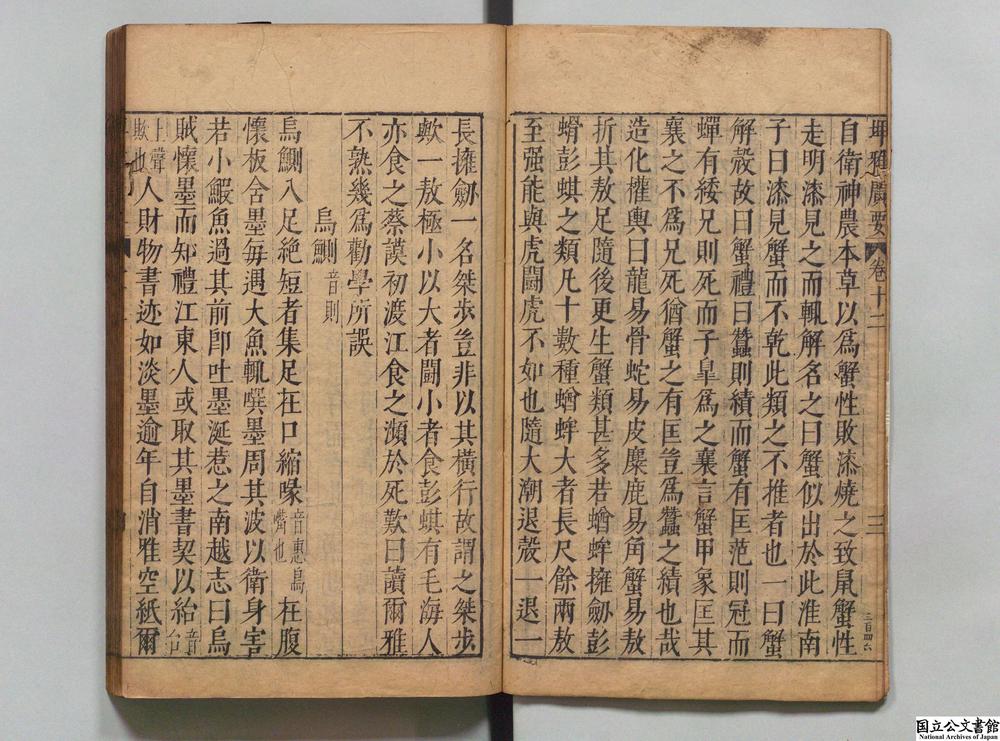 埤雅廣要 卷十二 三
自衛神農本草以爲蟹性敗漆燒之致鼠蟹性
走明漆見之而輒解名之曰蟹似出於此淮南
子曰漆見蟹而不乾此類之不推者也一曰蟹
解殼故曰蟹禮曰蠶則績而蟹有匡范則冠而
蟬有緌兄則死而子臯爲之襄言蟹甲象匡其
襄之不爲兄死猶蟹之有匡豈爲蠶之績也哉
造化權輿曰龍易骨蛇易皮麋鹿易角蟹易敖
折其敖足隨後更生蟹類甚多若蝤蛑擁劒彭
蝟彭蜞之類凡十數種蝤蛑大者長尺餘兩敖
至强能與虎鬬虎不如也隨大潮退殼一退一
長擁劒一名桀步豈非以其橫行故謂之桀步
歟一敖極小以大者鬬小者食彭蜞有毛海人
亦食之蔡謨初渡江食之瀕於死歎曰讀爾雅
不熟幾爲勸學所誤
烏鰂音則
烏鰂八足絶短者集足在口縮喙音惠烏觜也在腹
懷板含墨每遇大魚輒噀墨周其波以衛身害
若小鰕魚過其前卽吐墨涎惹之南越志曰烏
賊懷墨而知禮江東人或取其墨書契以紿音台
上聲欺也人財物書迹如淡墨逾年自消雅空紙爾
国立公文書館
National Archives of Japan